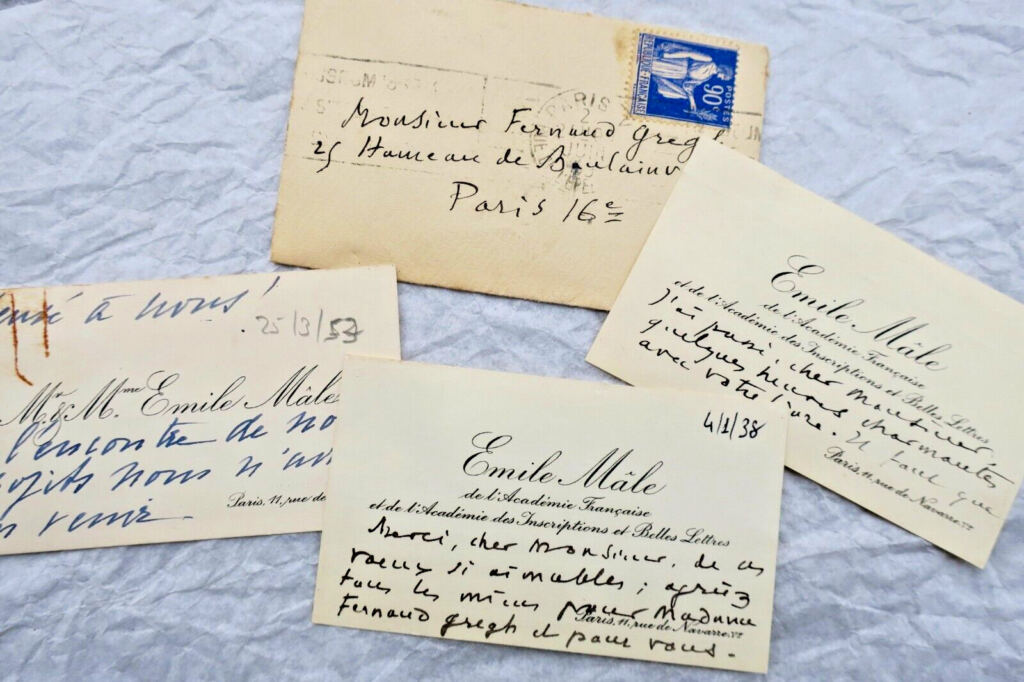 RÉPUBLIQUE FRANÇAISE
POSTES
90c
PARIS
Monsieur Fernand Gregh
25 Hameau de Boulainv
Paris 16e
à nous!
25/3/53
Mr & Mme Emile Mâle
l'encontre de no
nous n'av
venir
Paris, 11, rue de
4/1/38
Emile Mâle
de l'Académie Française
et de l'Académie des Inscriptions et Belles Lettres
Merci, cher Monsieur, de ces
vœux si aimables ; agréez
tous les miens pour Madame
Fernand Gregh et pour vous.
Paris, 11, rue de Navarre. Ve
Emile Mâle
de l'Académie Française
et de l'Académie des Inscriptions et Belles Lettres
j'ai passé, cher Monsieur,
quelques heures charmantes
avec votre livre. Il faut que
Paris, 11, rue de Navarre. Ve